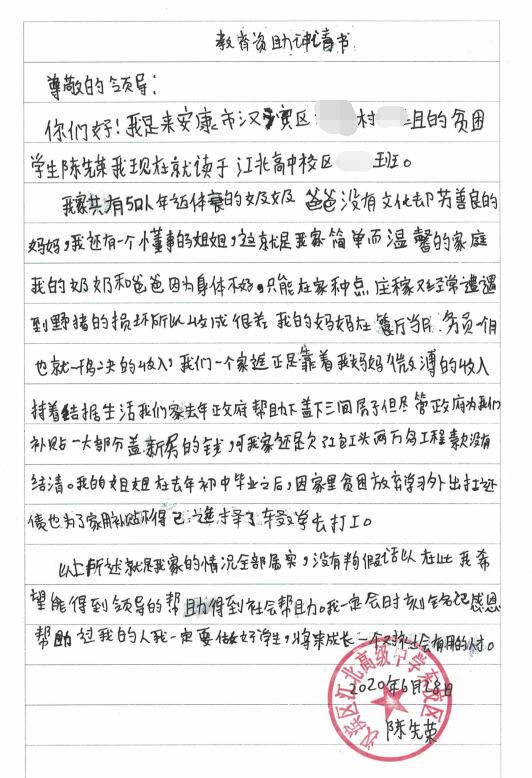 教育资助申请书
尊敬的领导：
你们好！我是来安康市汉滨区 村 组的贫困
学生陈先荣我现在就读于江北高中校区 班。
我家共有5口人年迈体衰的奶奶 爸爸没有文化却劳善良的
妈妈，我还有一个懂事的姐姐，这就是我家简单而温馨的家庭
我的奶奶和爸爸因为身体不好，只能在家种点庄稼又经常遭遇
到野猪的损坏所以收成很差 我的妈妈在餐厅当服务员一个月
也就一千多块的收入，我们一个家庭正是靠着我妈妈微薄的收入
持着拮据生活我们家去年政府帮助下盖下三间房子但尽管政府为我们
补贴一大部分盖新房的钱，可我家还是欠了包工头两万多工程款没有
结清。我的姐姐在去年初中毕业之后，因家里贫困放弃学习外出打工还
债也为了家用补贴不得已选择了辍学去打工。
以上所述就是我家的情况全部属实，没有半假话以在此我希
望能得到领导的帮助得到社会帮助。我一定会时刻会记感恩
帮助过我的人我一定要做好学生，将来成长一个对社会有用的人才。
2020年6月28日
陈先荣
汉滨区江北高级中学东校区